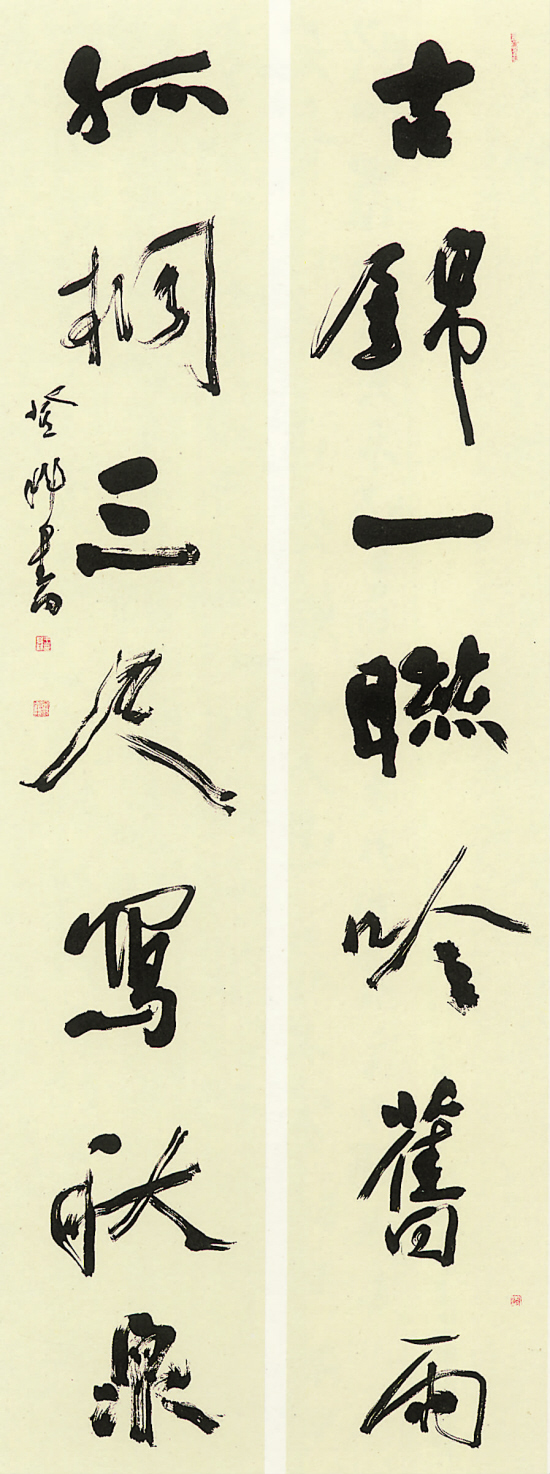 古錦一聯吟舊雨
孤桐三尺寫秋泉
書